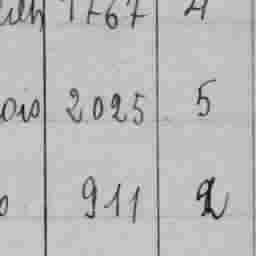 1767 4
ois 2025 5
911 2